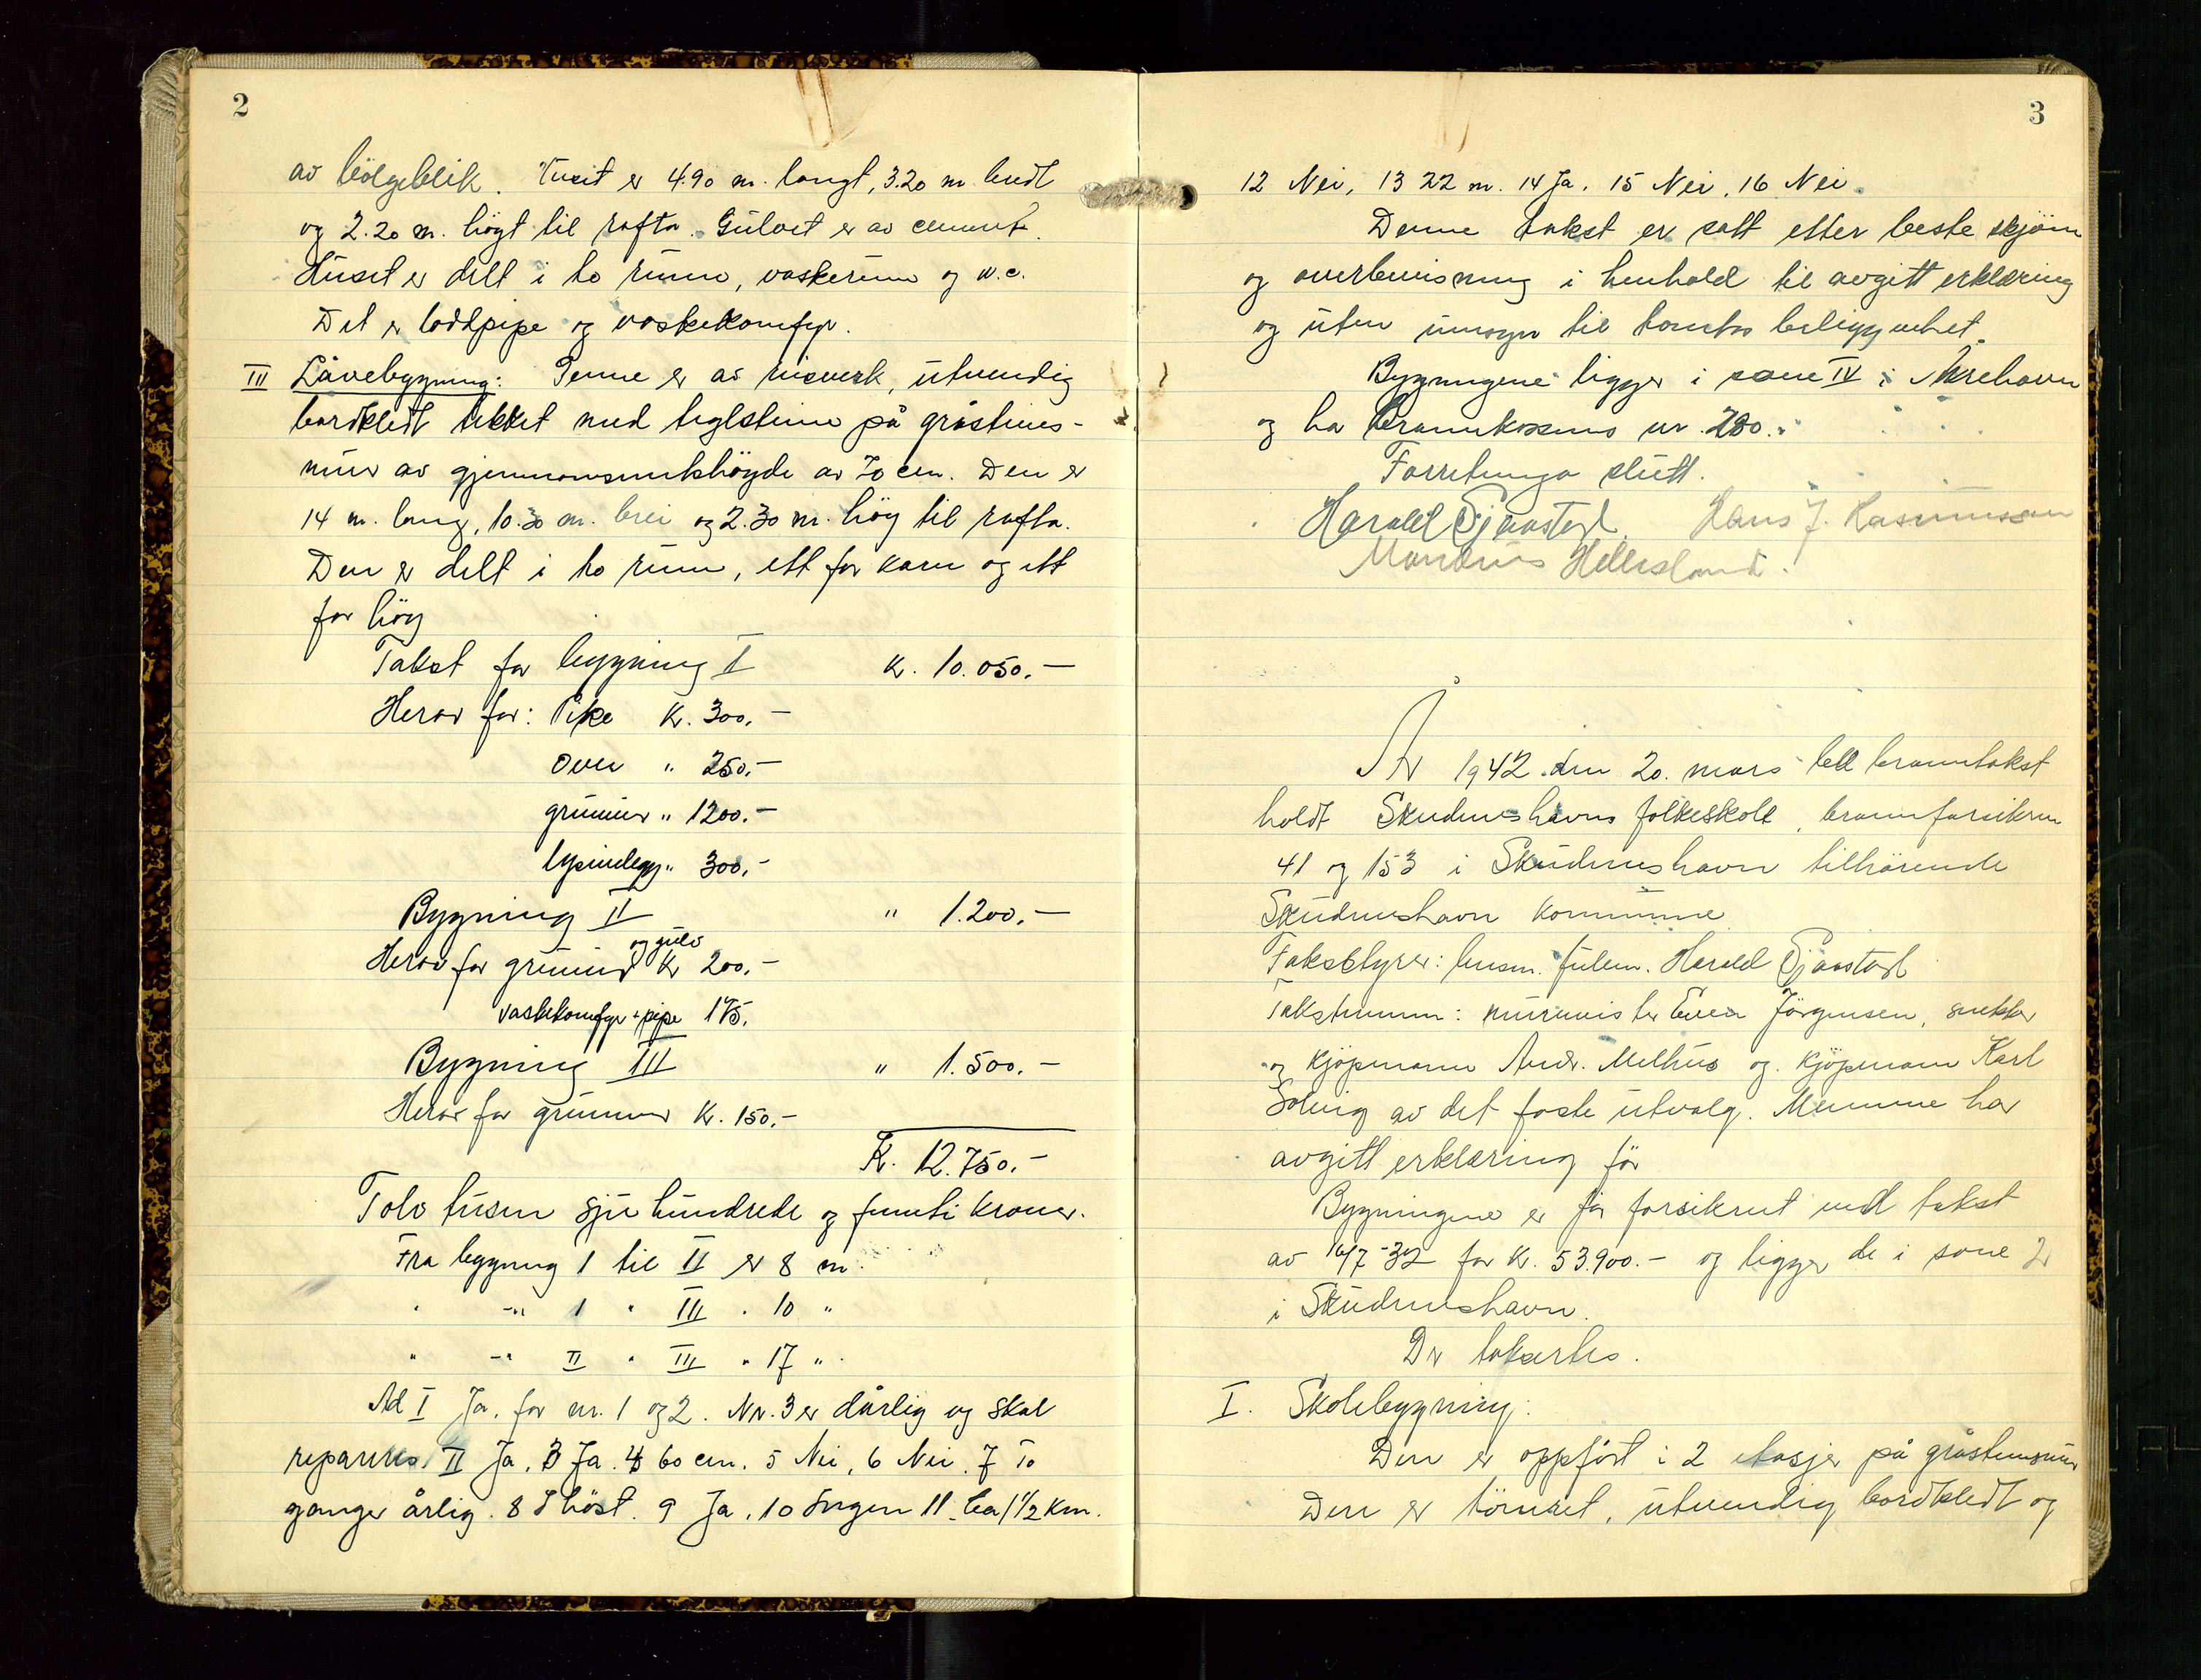 2
av bölgeblik. Huset er 4.90 m. langt, 3.20 m. bredt
og 2.20 m. högt til rafta. Gulvet er av cement.
Huset er delt i to rum, vaskerum og w.c.
Det er loddpipe og vaskekomfyr.
III Låvebygning: Denne er av risverk, utvendig
bordkledt tekket med teglsteine på gråsteins-
mur av gjennomsnitshöyde av 70 cm. Den er
14 m. lang, 10.30 m. brei og 2.30 m. höy til rafta.
Den er delt i to rum, ett for korn og ett
for höy
Takst for bygning I K. 10.050.-
Herav for: Pipe K. 300.-
Oven " 250.-
grunmur " 1200.-
lysinlegg " 300.-
Bygning II " 1.200.-
og gulv
Herav for grunmur Kr 200.-
vaskekomfyr + pipe 175.
Bygning III " 1.500.-
Herav for grunmur K. 150.-
K. 12.750.-
Tolv tusen sju hundrede og femti kroner.
Fra bygning 1 til II er 8 m.
" -"- 1 " III " 10 "
" -"- II " III " 17 "
Ad I Ja, for nr. 1 og 2. Nr. 3 er dårlig og skal
repareres. II Ja, 3 Ja. 4 60 cm. 5 Nei, 6 Nei. 7 To
ganger årlig. 8 I höst. 9 Ja, 10 Ingen 11 ca 1 1/2 km.
3
12 Nei, 13 22 m. 14 Ja. 15 Nei. 16 Nei.
Denne takst er satt etter beste skjönn
og overbevisning i henhold til avgitt erklæring
og uten innsyn til tomtens beliggenhet.
Bygningene ligger i sone IV i Åkrehavn
og har brannkassens nr. 280.
Forretninga slutt.
Harald Sjaastad. Hans J. Rasmussen
Mandius Hellesland.
År 1942 den 20. mars ble branntakst
holdt Skudeneshavns folkeskole, brannforsikrnr
41 og 153 i Skudeneshavn tilhörende
Skudeneshavn kommune
Takstyrer: lensm. fulm. Harald Sjaastad
Takstmenn: murmester Jörgensen, snekker
og kjöpmann Andr. Melhus og kjöpmann Karl
Solvig av det faste utvalg. Mennene har
avgitt erklæring för
Bygningene er för forsikret ved takst
av 16/7-32 for K. 53.900.- og ligger de i sone 2
i Skudeneshavn.
De takseres.
I. Skolebygning:
Den er oppfört i 2 etasjer på gråstensmur
Den er tömret, utvendig bordkledt og